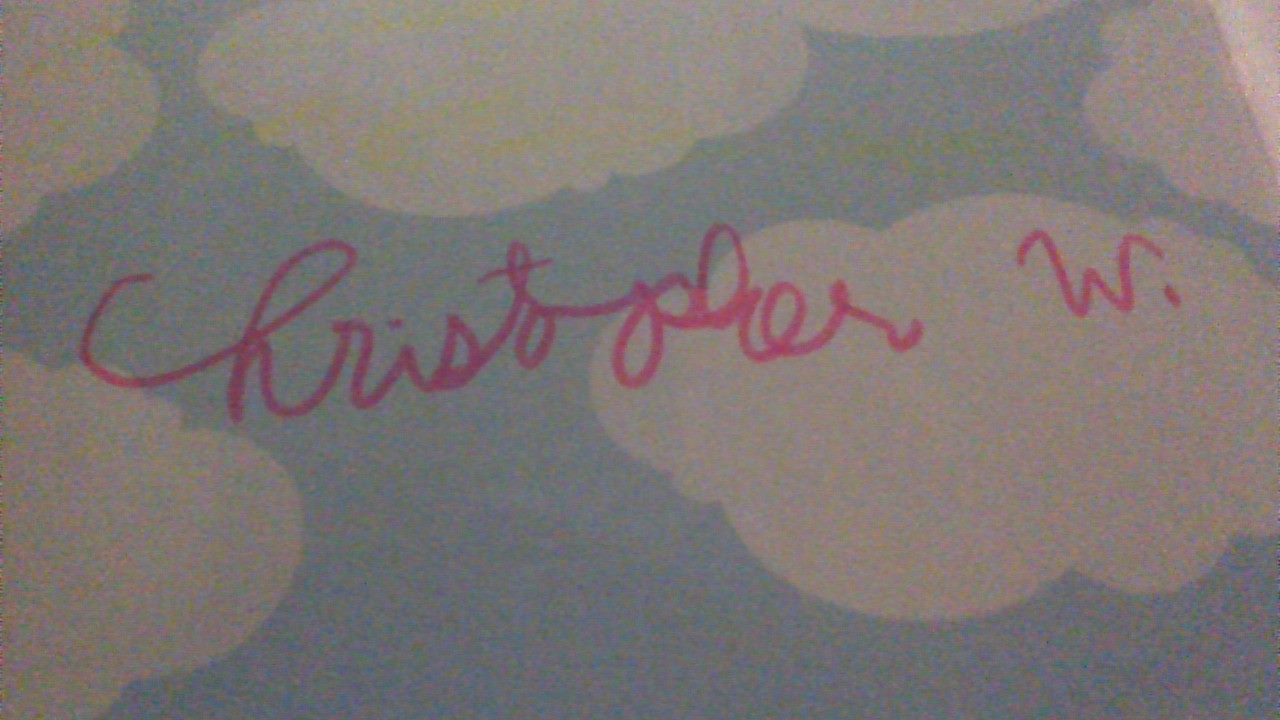 Christopher W.